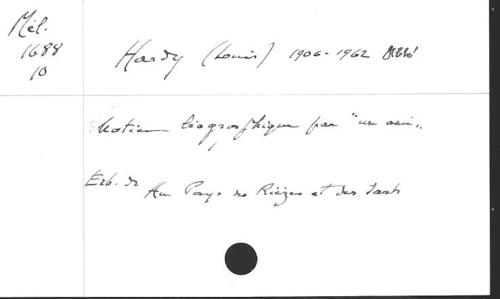 Mél.
1688
10
Hardy (Louis) 1906-1962 Abbé
Notice biographique par "un ami"
Extr. de Au Pays des Rièzes et des Sarts